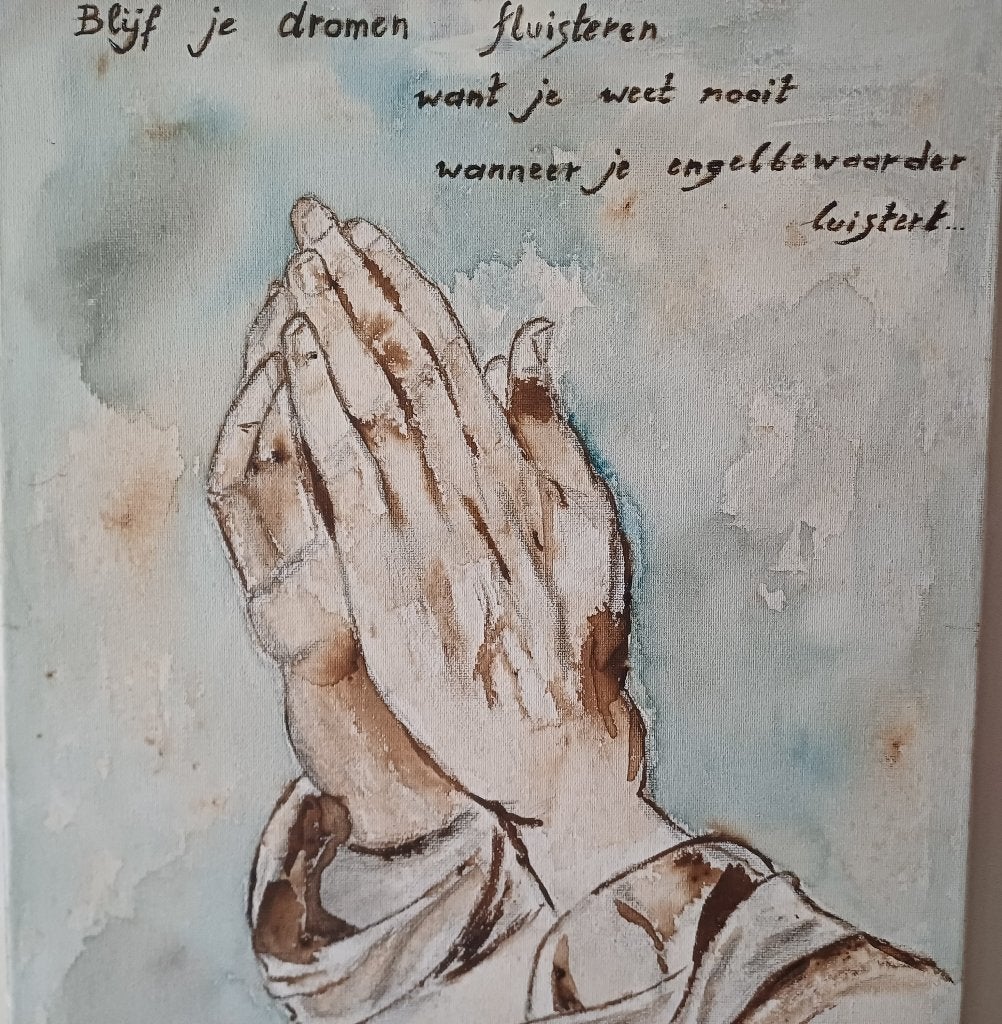 Blijf je dromen fluisteren
want je weet nooit
wanneer je engelbewaarder
luistert...